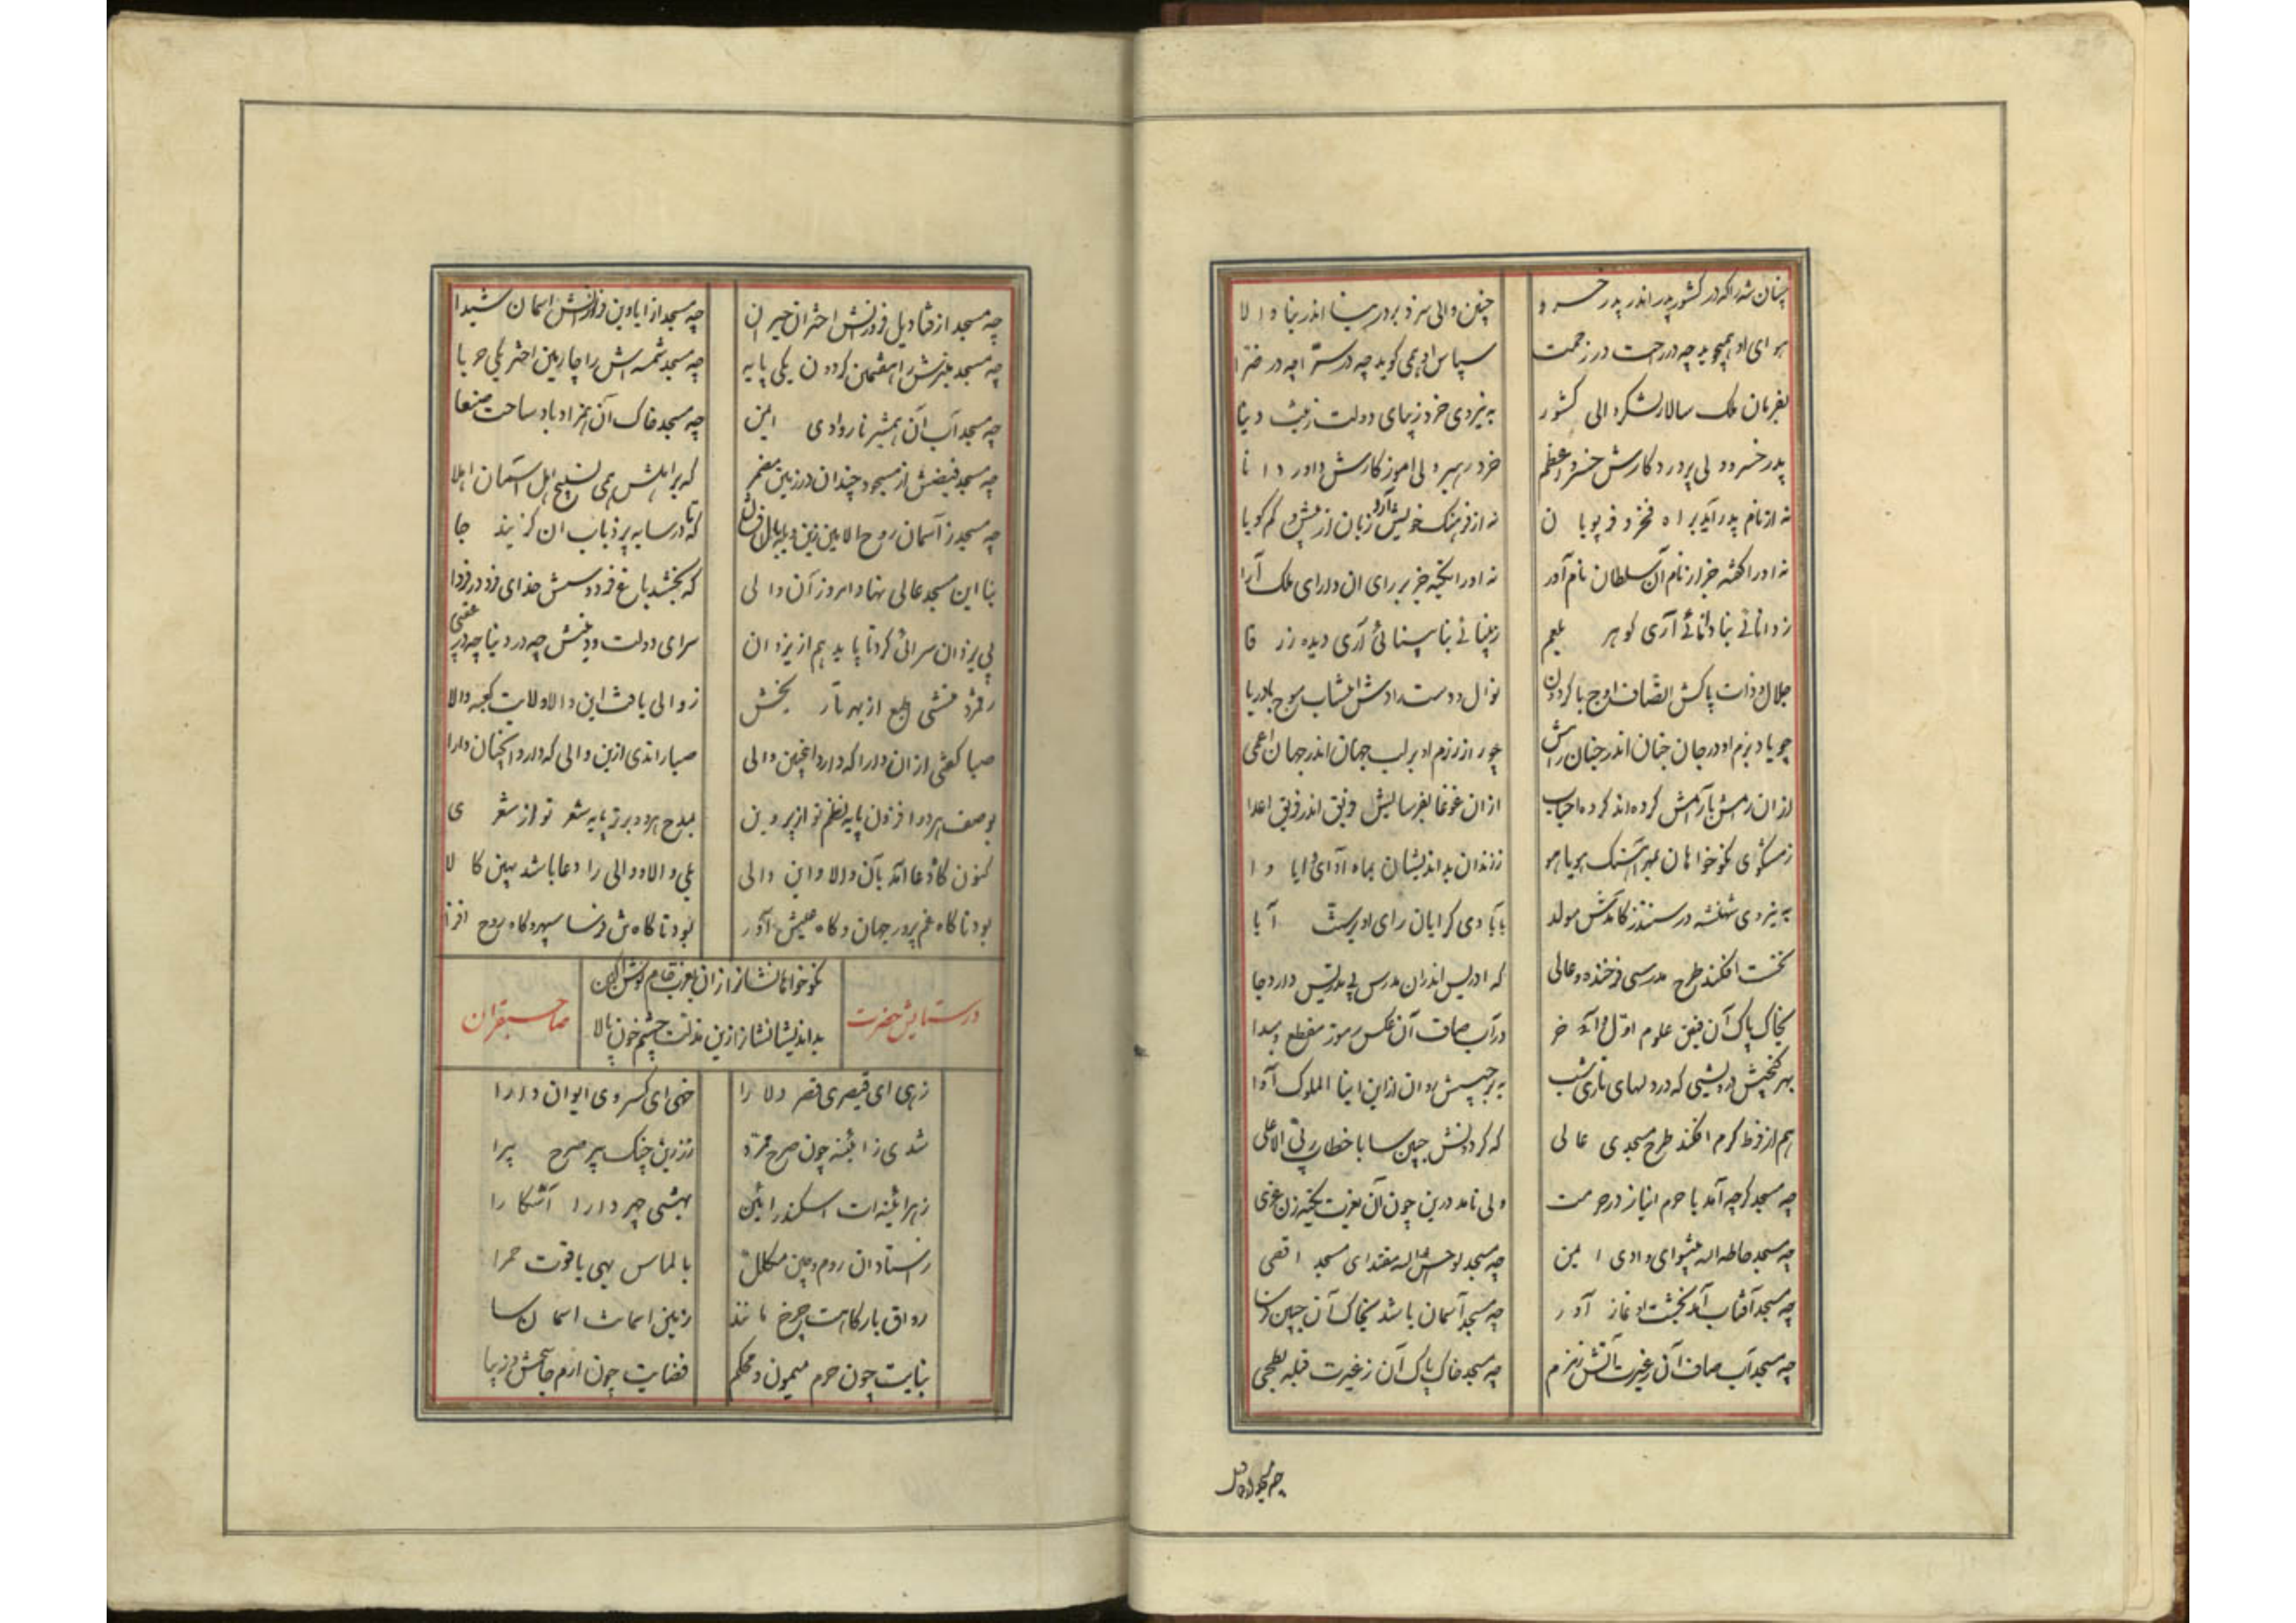 چنان شه را که در کشور پدر اندر پدر خسرو
چنین والی سزد بر در نیا اندر نیا والا
هوای او همیجوید چه در راحت چه در زحمت
سپاس او همی گوید چه در سرّا چه در ضرّا
بفرمان ملک سالار لشکر والی کشور
به نیروی خرد زیبای دولت زینت دنیا
پدر خسرو ولی پرورد کارش خسرو اعظم
خرد رهبر ولی آموزگارش داور دانا
نه از نام پدر آید براه فخر و فر پویان
نه از فرهنگ خویش آرد زبان از بیش و کم گویا
نه او را گفته جز از نام آن سلطان نام آور
نه او را تکیه جز بر رای آن دارای ملک آرا
ز دانائی بنادانائی آری گوهر بلعم
ز بینائی بنابینائی آری دیده زرقا
جلال و ذات پاکش اتصاف اوج با گردون
نوال و دست رادش انتساب موج با دریا
چو یاد بزم او در جان جنان اندر جنان رامش
چو راز رزم او بر لب جهان اندر جهان اعمی
از آن رامش بآرامش گروه اندر گروه احباب
از آن غوغا بفرسایش فریق اندر فریق اعدا
ز مشکوی نکوخواهان بمهر آهنگ هویاهو
ز زندان بداندیشان بماه آوای وایا وا
به نیروی شهنشه در سنندز کامدش مولد
بآبادی گرایان رای او پیوست آیا
نخست افکند طرح مدرسی فرخنده و عالی
که ادریس اندران مدرس پی تدریس دارد جا
بخاک پاک آن فیض علوم اول و آخر
در آب صاف آن عکس رموز مقطع و مبدا
بهر کنجیش درویشی که در دلهای تاری شب
به برجیسش روان از این ابنا الملوک آوا
هم از فرط کرم افکند طرح مسجدی عالی
که گردونش جبین سا با خطاب ربی الاعلی
چه مسجد گرچه آمد با حرم انباز در حرمت
ولی نامد درین چون آن بعزت تکیه زن عزی
چه مسجد حاطه الله پیشوای وادی ایمن
چه مسجد لوحش الله مقتدای مسجد اقصی
چه مسجد آفتاب آمد بخشت او نماز آور
چه مسجد آسمان باشد بخاک آن جبین فرسا
چه مسجد آب صاف آن ز غیرت آتش زمزم
چه مسجد خاک پاک آن ز غیرت قبله بطحی
چه مسجد از قنادیل فروزنش اختران حیران
چه مسجد از ایاوین فرازنش آسمان شیدا
چه مسجد منبرش را هفتمین گردون یکی پایه
چه مسجد شمسه اش را چارمین اختر یکی حربا
چه مسجد آب آن همشیر با وادی ایمن
چه مسجد خاک آن همزاد با ساحت صنعا
چه مسجد فیضش از مسجود چندان در زمین مضمر
که بر اهلش همی تسبیح اهل آسمان اهلا
چه مسجد ز آسمان روح الامین زین و بله بال افرازد
که تا در سایه پر ذباب آن گزیند جا
بنا این مسجد عالی نهاد امروز آن والی
که بخشد باغ فردوسش خدای فرد در فردا
پی یزدان سرائی کرد تا یابد هم از یزدان
سرای دولت و دینش چه در دنیا چه در عقبی
رقم زد منشی طبع از بهر تاریخش
ز والی یافت این والا ولایت کعبه والا
صبا گفتی از آن دارا که دارد اینچنین والی
صبا راندی ازین والی که دارد آنچنان دارا
بوصف هر دو افزون پایه نظم تو از پروین
بمدح هر دو برتر پایه شعر تو از شعری
کنون گاه دعا آمد بآن والا و این والی
بلی والا و والی را دعا باشد بهین کالا
بود تا گاه غم پرور جهان و گاه عیش آور
بود تا گاهش فرسا سپهر و گاه روح افزا
نکوخواهانشان را زان بعزت
بداندیشانشان را زین مذلت چشم خون پالا
در ستایش حضرت صاحبقران
زهی ای قیصری قصر دلارا
خهی ای کسروی ایوان دارا
شدی ز آئینه چون صرح ممرّد
ز زرین چنگ پیر صرح پیرا
ز هر آئینه ات اسکندر آئین
بهشتی چهر دارا آشکارا
ز استادان روم و چین مکلل
بالماس بهی یاقوت حمرا
رواق بارگاهت چرخ مانند
زمین آسمانت آسمان سا
بنایت چون حرم میمون و محکم
فضایت چون ارم جانبخش و زیبا
چه مسجد از قنادیل